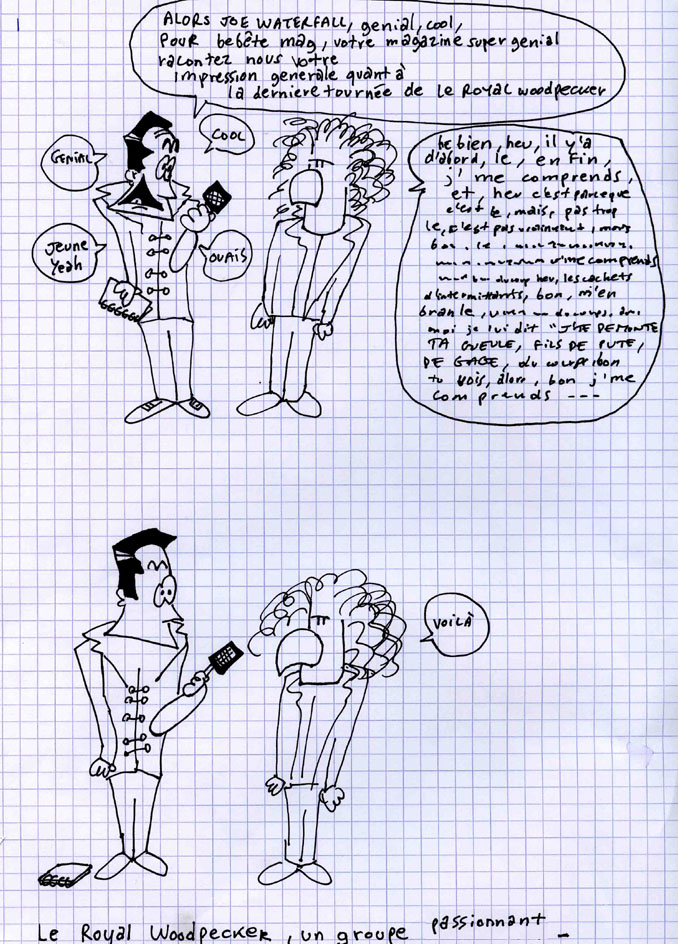 ALORS JOE WATERFALL, genial, cool,
POUR bebête mag, votre magazine super genial
racontez nous votre
impression generale quant à
la derniere tournée de Le Royal Woodpecker
GENIAL
COOL
JEUNE
Yeah
OUAIS
be bien, heu, il y'a
d'abord, le, en fin,
j'me comprends,
et, heu c'est parceque
c'est le, mais, pas trop
le, c'est pas vraiment, mais
bon, le,
m'me comprends
heu, les cachets
d'intermittents, bon, m'en
branle, du coup,
moi je lui dit "J'TE DEMONTE
TA GUEULE, FILS DE PUTE,
DEGAGE, du coup, bon
tu vois, alors, bon j'me
comprends ---
VOILÀ
Le Royal Woodpecker, un groupe passionnant _